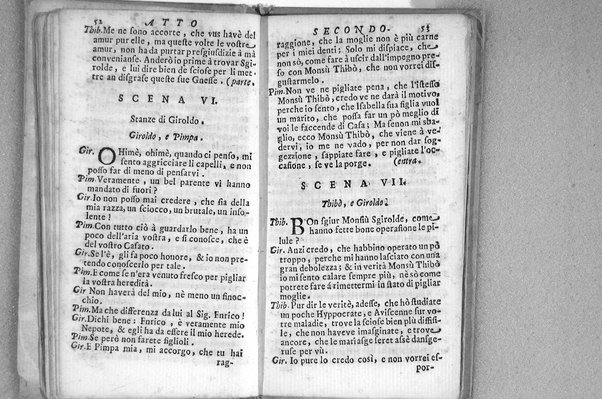 52 ATTO
Tib. Me ne sono accorte, che vus havè del
amur pur elle, ma queste volte le vostre
amur, non ha da purtar presgiusdizie à mà
convenianse. Anderò io prime à trovar Sgi-
rolde, e lui dire bien de sciose per li met-
tre an disgrase queste sue Gnesse. (parte.
SCENA VI.
Stanze di Giroldo.
Giroldo, e Pimpa.
Gir. OHimè, ohimè, quando ci penso, mi
sento aggricciare li capelli, e non
posso far di meno di pensarvi.
Pim. Veramente, un bel parente vi hanno
mandato di fuori?
Gir. Io non posso mai credere, che sia della
mia razza, un sciocco, un brutale, un inso-
lente!
Pim. Con tutto ciò à guardarlo bene, ha un
poco dell'aria vostra, e si conosce, che è
del vostro Casato.
Gir. Se l'è, gli fa poco honore, & io non pre-
tendo conoscerlo per tale.
Pim. E come se n'era venuto fresco per pigliar
la vostra heredità.
Gir. Non haverà del mio, nè meno un finoc-
chio.
Pim. Ma che differenza da lui al Sig. Enrico!
Gir. Dichi bene: Enrico, è veramente mio
Nepote, & egli ha da essere il mio herede.
Pim. Se però non farete figlioli.
Gir. E Pimpa mia, mi accorgo, che tu hai
rag-
SECONDO. 53
raggione, che la moglie non è più carne
per i miei denti; Solo mi dispiace, che
non sò, come fare à uscir dall'impegno pre-
so con Monsù Thibò, che non vorrei dis-
gustarmelo.
Pim. Non ve ne pigliate pena, che l'istesso
Monsù Thibò, credo ve ne darà il motivo,
perche io sento, che Isabella sua figlia vuol
un marito, che possa far un pò meglio di
voi le faccende di Casa; Ma se non mi sba-
glio, ecco Monsù Thibò, che viene à ve-
dervi, io me ne vado, per non dar sog-
gezzione, sappiate fare, e pigliate l'oc-
casione, se ve la porge. (entra.
SCENA VII.
Thibò, e Giroldo.
Thib. BOn sgiur Monsù Sgirolde, come
hanno fette bone operasione le pi-
lule?
Gir. Anzi credo, che habbino operato un pò
troppo, perche mi hanno lasciato con una
gran debolezza; & in verità Monsù Thibò
io mi sento calare sempre più, nè sò come
potrete fare à rimettermi in stato di pigliar
moglie.
Thib. Pur dir le verità, adesse, che hò studiate
un poche Hyppocrate, e Aviscenne sur vo-
tre maladie, trove la sciose bien più diffisi-
le, che non haveve imasginate, e trove
ancore, che le mariasge seret assè dansge-
ruse per vù.
Gir. Io pure lo credo così, e non vorrei es-
por-